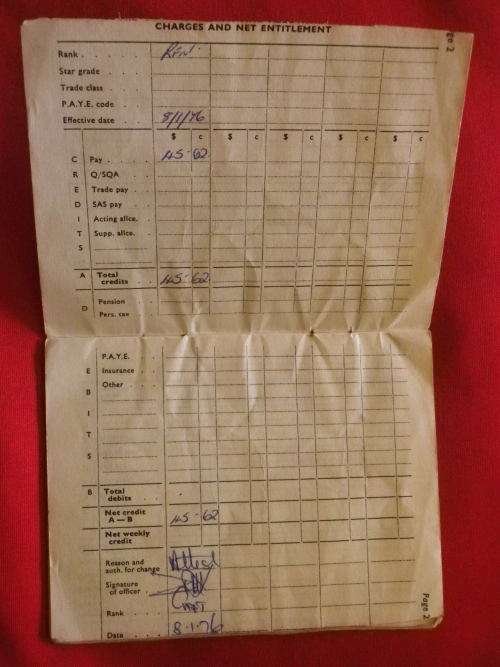 CHARGES AND NET ENTITLEMENT
Page 2
Rank . . . . . Rfn
Star grade . . . .
Trade class . . . .
P.A.Y.E. code . . .
Effective date . . . 8/1/76
$ c $ c $ c $ c $ c
C Pay . . . . 45-62
R Q/SQA
E Trade pay . .
D SAS pay . .
I Acting allce. . .
T Supp. allce. . .
S
A Total credits . . . 45-62
D Pension
Pers. tax
P.A.Y.E.
E Insurance . .
B Other . . .
I
T
S
B Total debits . . .
Net credit A — B 45-62
Net weekly credit
Reason and auth. for change
Signature of officer . . .
Rank . . .
Date . . . 8-1-76
Page 2